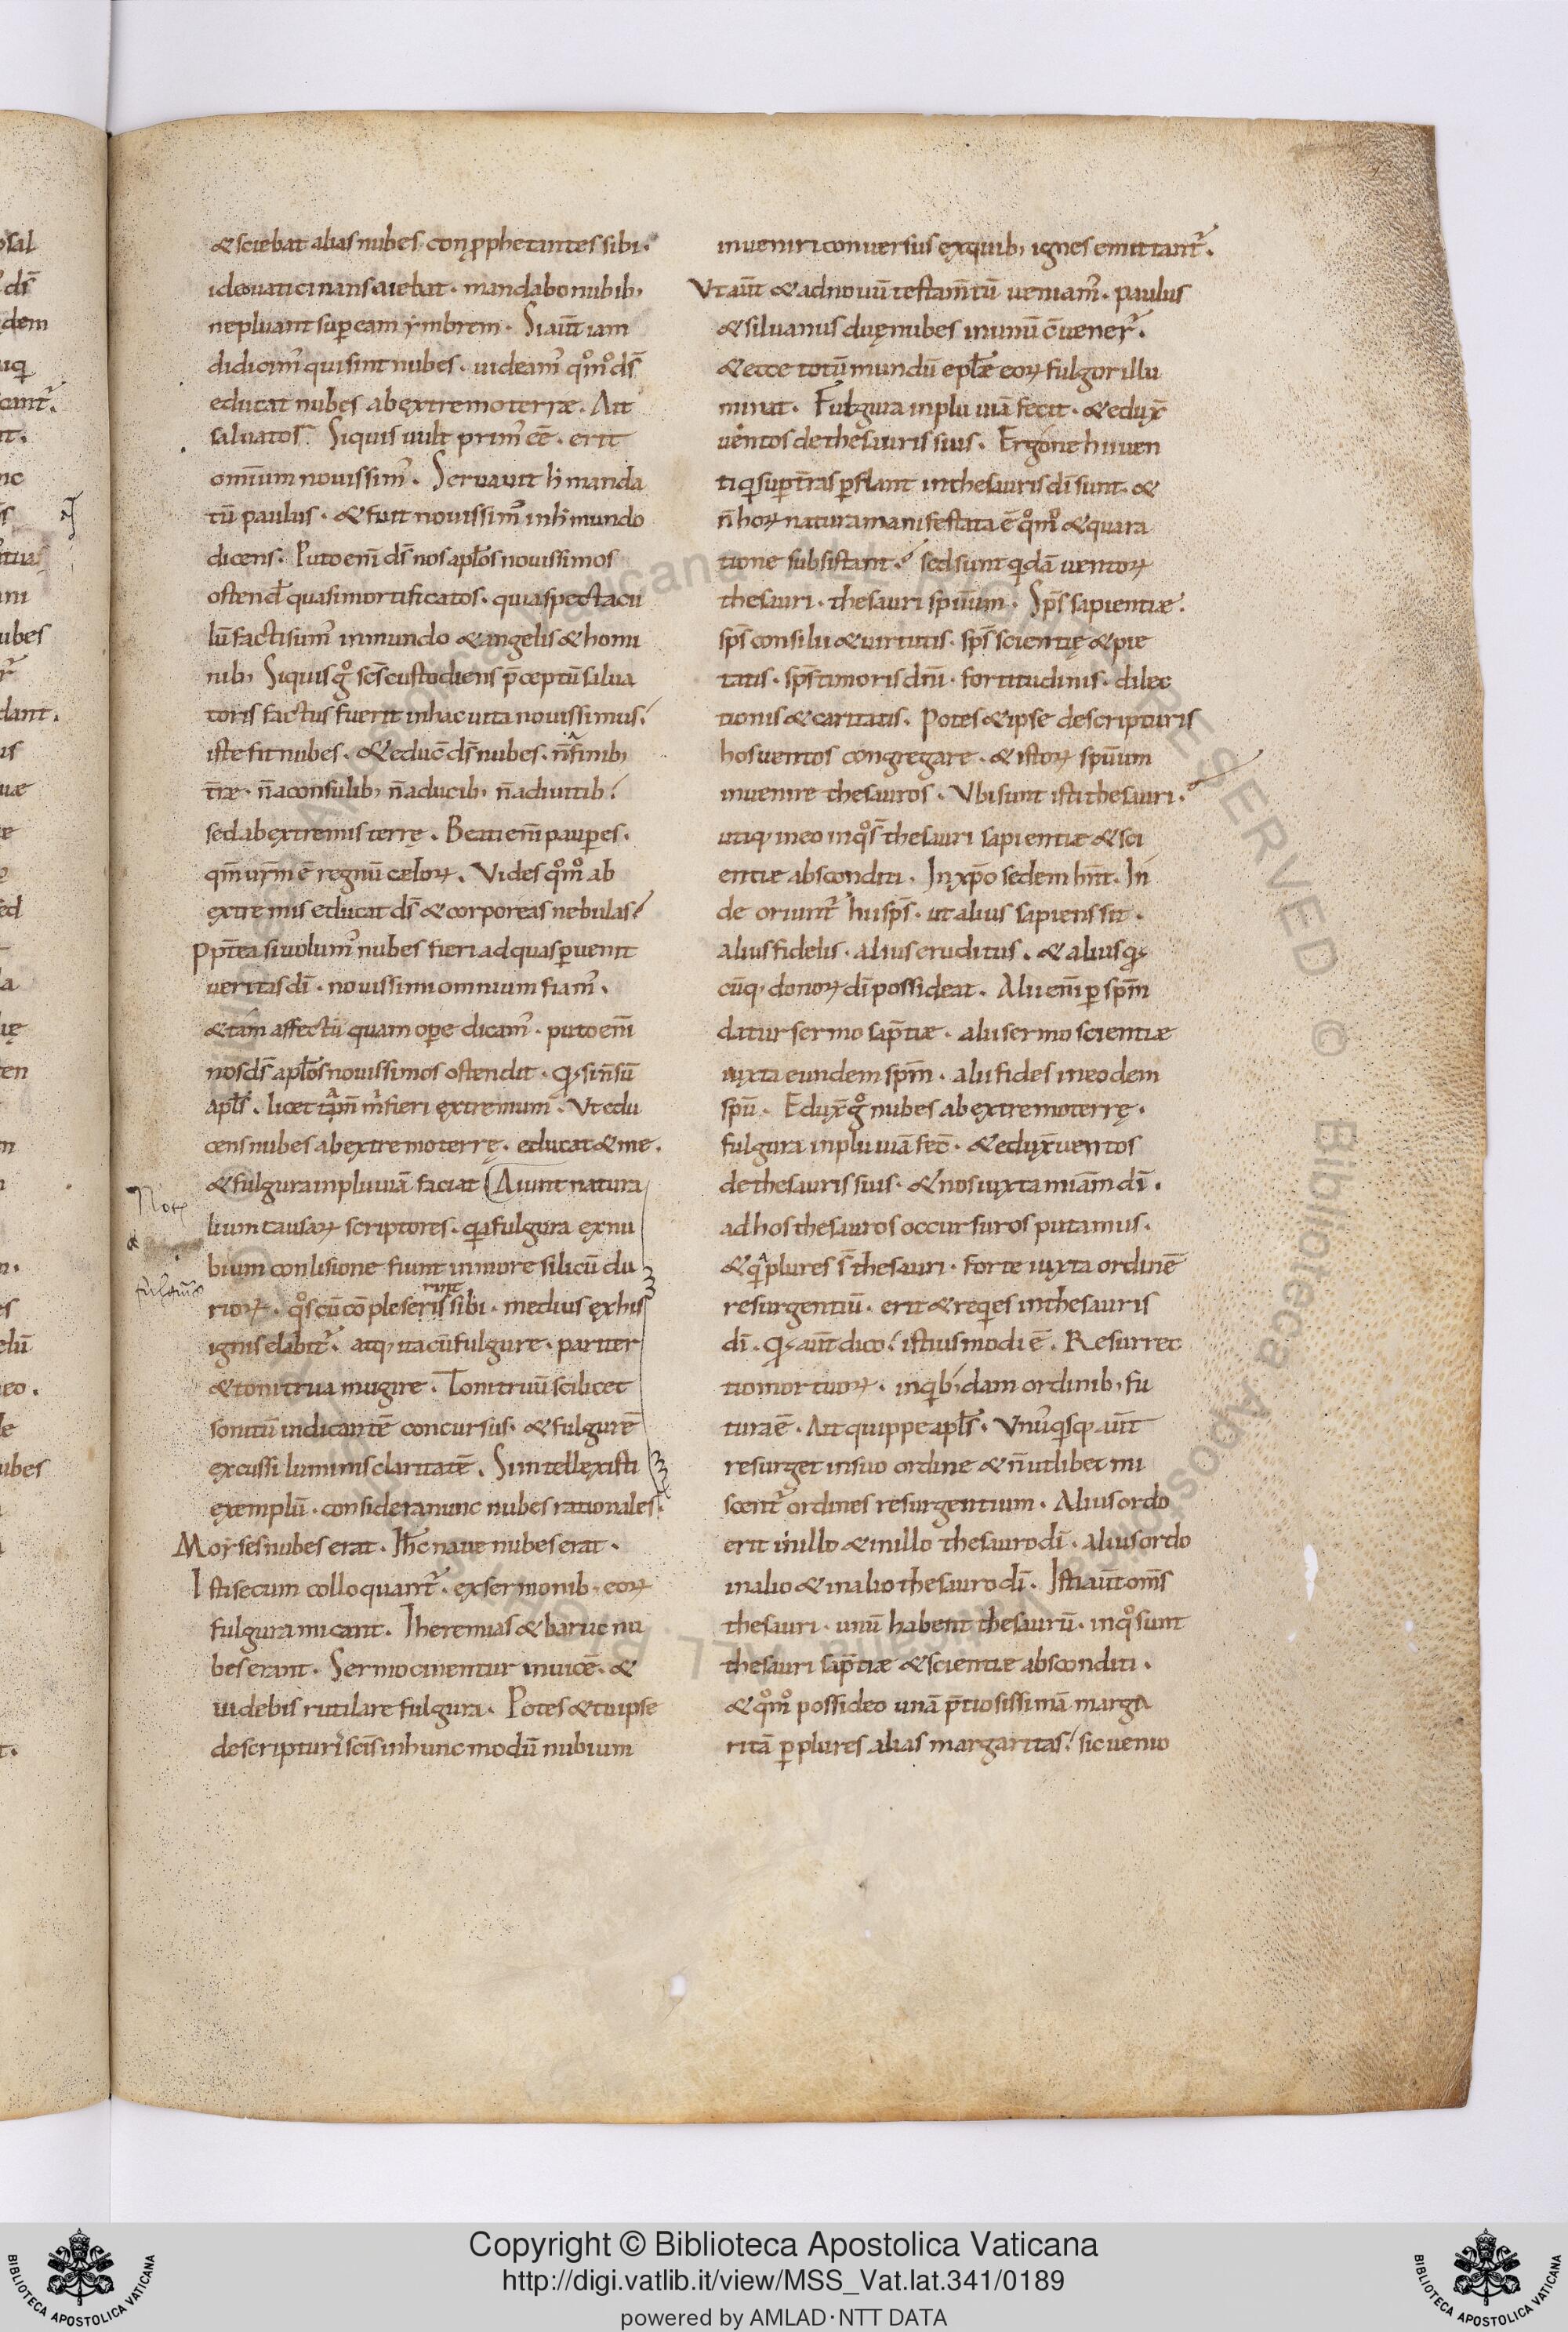 &sciebat alias nubes conp̱phetantes sibi.
ideo uaticinans aiebat. mandabo nubib;
ne pluant sup eam ymbrem. Si aut̄ iam
didicim᾽ qui sint nubes. uideam᾽ qͦmͦ ds̄
educat nubes ab extremo terræ. Ait
saluator. Siquis uult prim᾽ ee᷑. erit
omnīum nouissim᾽. Seruauit h̄ manda
tū paulus. & fuit nouissim᾽ in h̄ mundo
dicens. Puto eni᷑ ds̄ nos apl̄os nouissimos
ostend̄ quasi mortificatos. quia spectacu
lū facti sum᾽ in mundo & angelis & homi
nib; Siquis gͦ sc̄s custodiens p̄ceptū salua
toris factus fuerit in hac uita nouissimus.
iste fit nubes. & educ̄ ds̄ nubes. n̄ finib;
tr̄æ. n̄ a consulib; n̄ a ducib; n̄ a diuitib;
sed ab extremis terrę. Beati eni᷑ paup̱es.
qm̄ ur̄m ē regnū cęloꝝ. Vides qͦmͦ ab
extremis educat ds̄ & corporeas nebulas?
Ppt̄ea si uolum᾽ nubes fieri ad quas p̱uenit
ueritas dī. nouissimi omnium fiam᾽.
& tam affectū quam ope dicam᾽. puto eni᷑
nos ds̄ apl̄os nouissimos ostendit. qđ si n̄ sū
apl̄s. licet tam̄ m᷑ fieri extremum. Vt edu
cens nubes ab extremo terrę. educat & me.
& fulgura in pluuiā faciat Aiunt natura
lium causaꝝ scriptores. qđ fulgura ex nu
bium conlisione fiunt in more silicū du
rioꝝ. qͦs cū cōpleseris sibi. medius ex his
ignis elabit᷑. atq; ita cū fulgure. pariter
& tonitrua mugire. Tonitruū scilicet
sonitū indicantē concursus. & fulgurē
excussi luminis claritatē. Si intellexisti
exemplū. considera nunc nubes rationales.
Moyses nubes erat. Ih̄c naue nubes erat.
Isti secum colloquant᷑. ex sermonib; eoꝝ
fulgura micant. Iheremias & baruc nu
bes erant. Sermocinentur inuicē. &
uidebis rutilare fulgura. Potes & tu ipse
de scripturis sc̄is in hunc modū nubium
Nota
&
fulgura
inueniri conuersus ex quib; ignes emittant᷑.
Vt aut̄ & ad nouū testam̄tū ueniam᾽. paulus
& siluanus duę nubes in unū c̄uener᷑.
& ecce totū mundū epl̄æ eoꝝ fulgor illu
minat. Fulgura in pluuiā fecit. & edux̄
uentos de thesauris suis. Ergone hi uen
ti qͥ sup̱ tr̄as p̱flant in thesauris dī sunt. &
n̄ hoꝝ natura manifestata ē qͦmͦ & qua ra
tione subsistant? sed sunt qͥdā uentoꝝ
thesauri. thesauri spūum. Sps̄ sapientiæ.
sps̄ consilii & uirtutis. sps̄ scientię & pie
tatis. sps̄ timoris dn̄i. fortitudinis. dilec
tionis & caritatis. Potes & ipse de scripturis
hos uentos congregare. & istoꝝ spūum
inuenire thesauros. Vbi sunt isti thesauri.
utiq; in eo in qͦ s̄ thesauri sapientiæ & sci
entiæ absconditi. In xp̄o sedem hn̄t. In
de oriunt᷑ hii sps̄. ut alius sapiens sit.
alius fidelis. alius eruditus. & alius qđ
cūq; donoꝝ dī possideat. Alii eni᷑ p̱ spm̄
datur sermo sap̄tiæ. alii sermo scientiæ
iuxta eundem spm̄. alii fides in eodem
spū. Edux̄ gͦ nubes ab extremo terrę.
fulgura in pluuiā fec̄. & edux̄ uentos
de thesauris suis. & nos iuxta miām dī.
ad hos thesauros occursuros putamus.
& qͥa plures s̄ thesauri. forte iuxta ordinē
resurgentiū. erit & reqͥes in thesauris
dī. qđ aut̄ dico. istiusmodi ē. Resurrec
tio mortuoꝝ. in qͥb;dam ordinib; fu
tura ē. Ait quippe apl̄s. Vnus̄qͥsq; aut̄
resurget in suo ordine & n̄ utlibet mi
scent᷑ ordines resurgentium. Alius ordo
erit in illo & in illo thesauro dī. alius ordo
in alio & in alio thesauro dī. Isti aut̄ oms̄
thesauri. unū habent thesaurū. in qͦ sunt
thesauri sap̄tiæ & scientiæ absconditi.
& qͦmͦ possideo unā p̄tiosissimā marga
ritā p̱ plures alias margaritas. sic uenio
sal
ds̄
dem
ubes
Copyright © Biblioteca Apostolica Vaticana
http://digi.vatlib.it/view/MSS_Vat.lat.341/0189
powered by AMLAD·NTT DATA
BIBLIOTECA APOSTOLICA VATICANA
BIBLIOTECA APOSTOLICA VATICANA